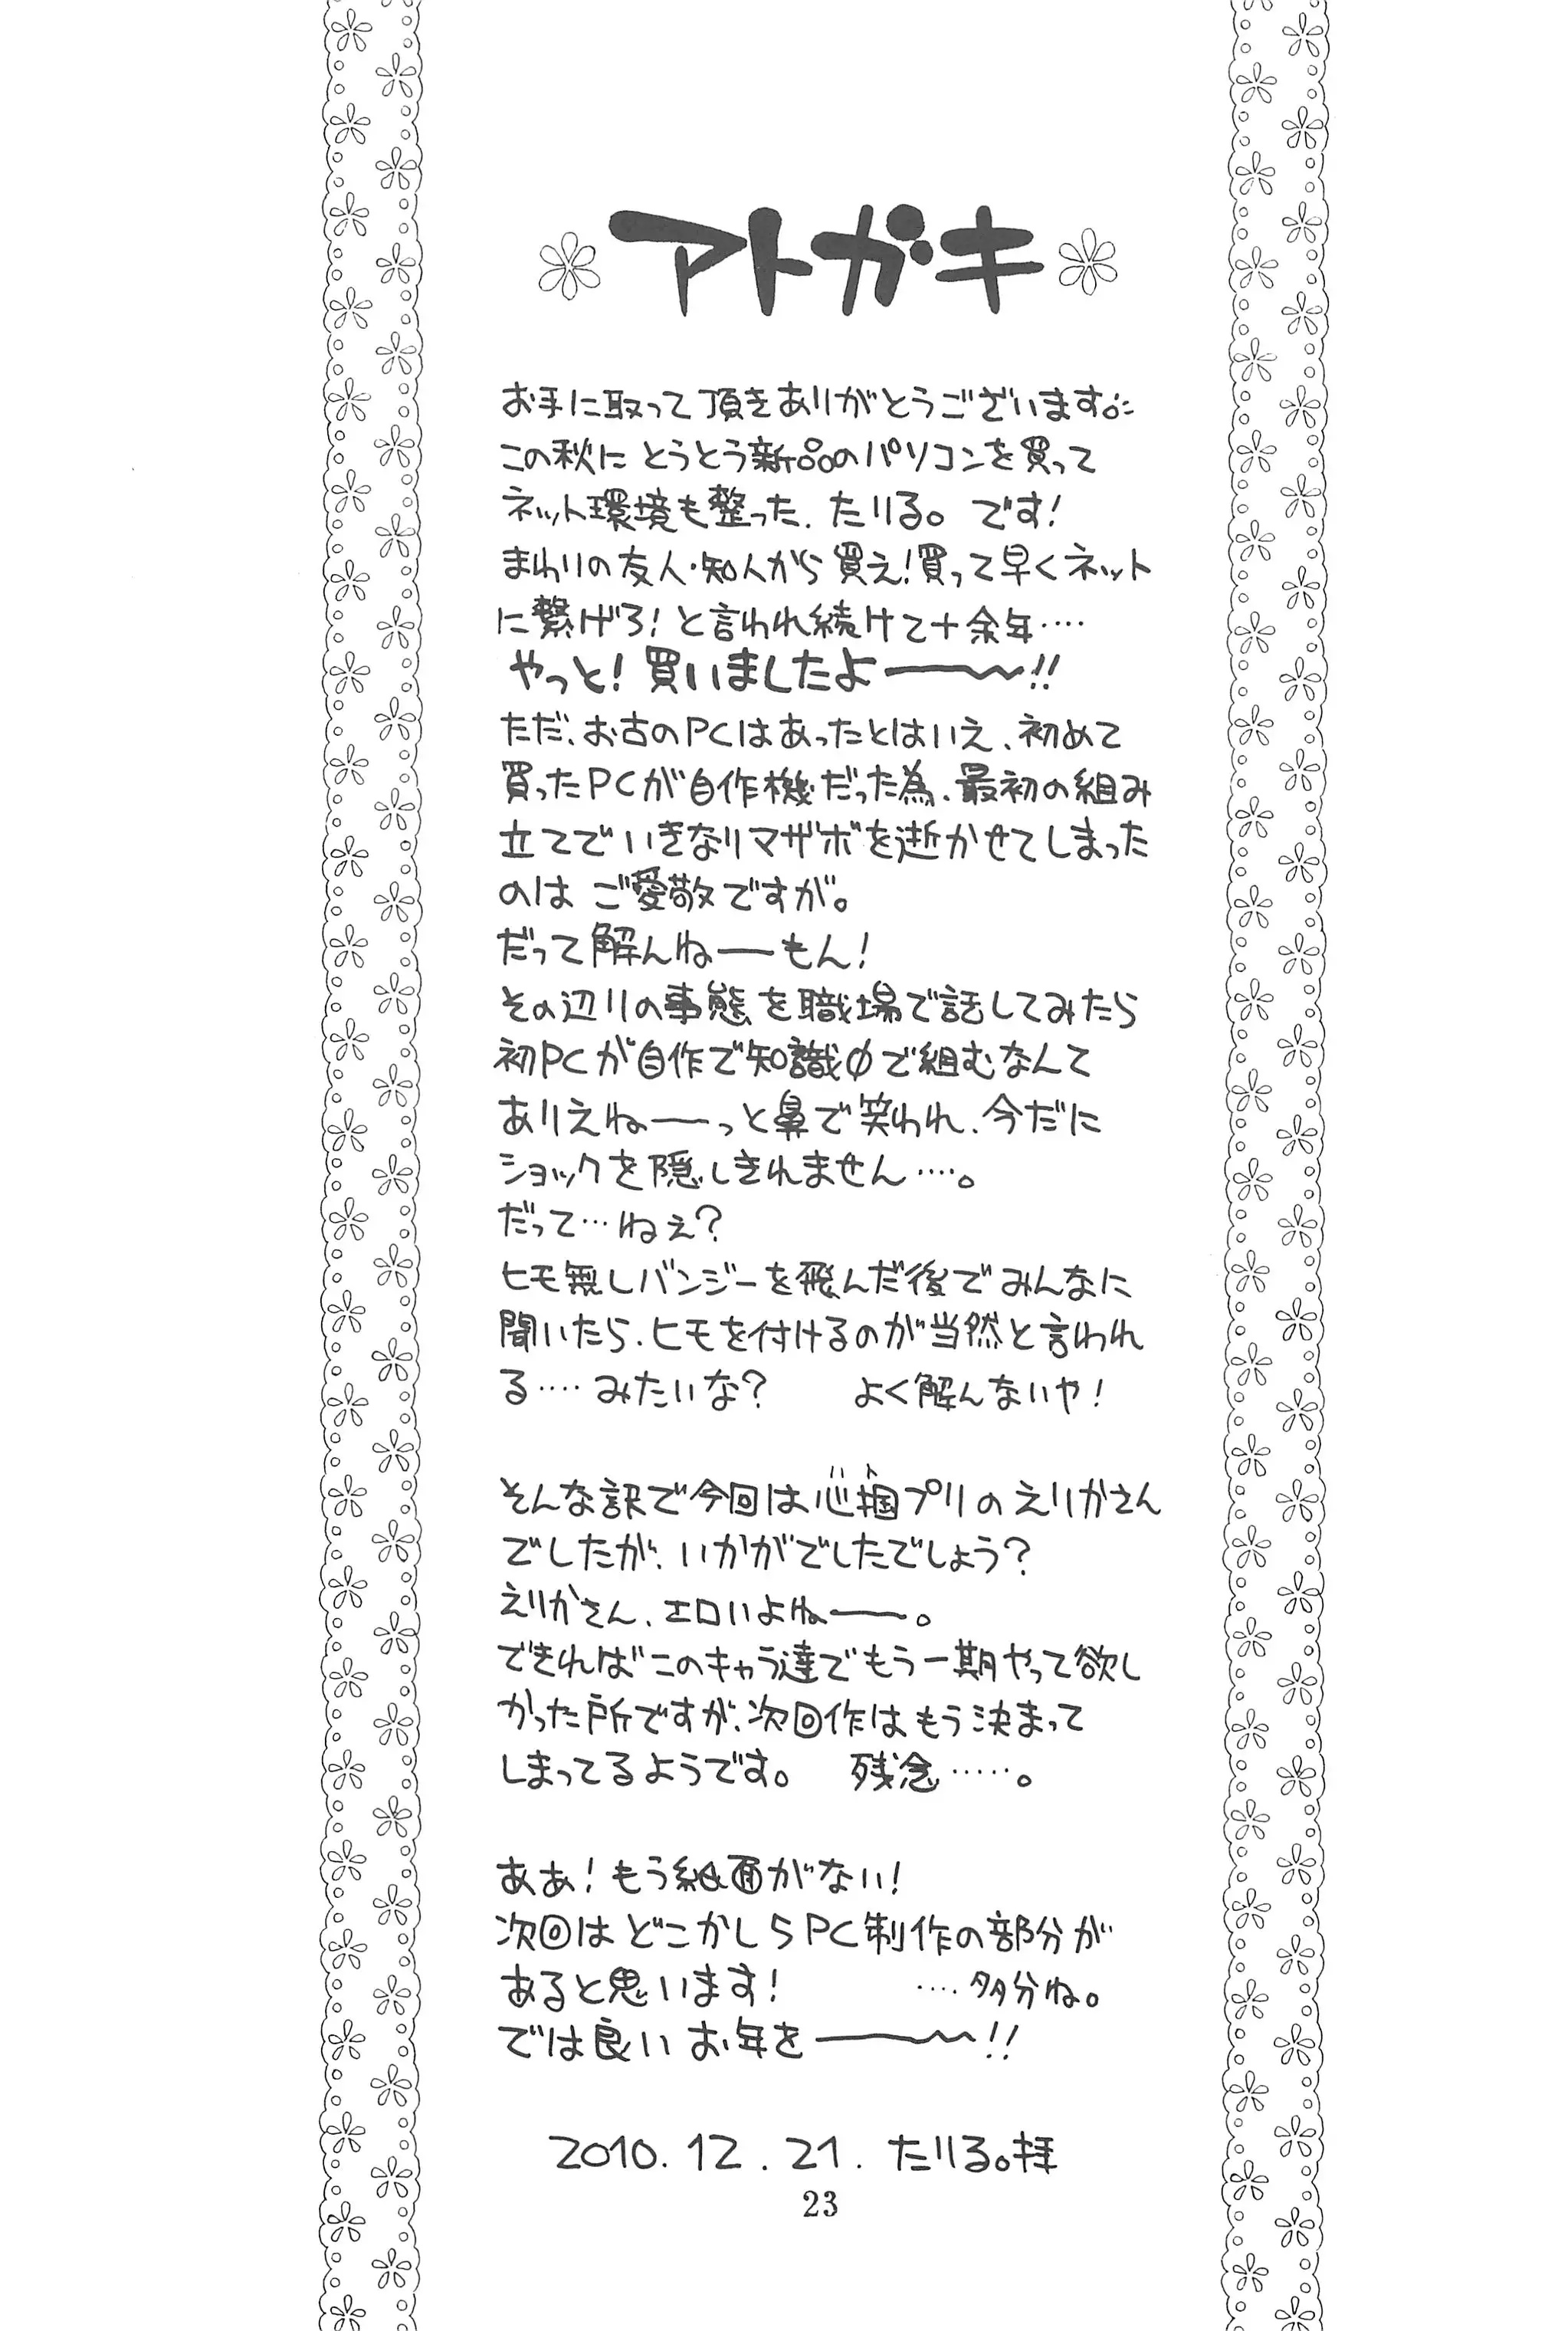 アトガキ
お手に取って頂きありがとうございます。
この秋にとうとう新品のパソコンを買って
ネット環境も整った、たりる。です!
まわりの友人・知人から買え!買って早くネット
に繋げろ!と言われ続けて十余年‥‥
やっと!買いましたよーー〜!!
ただ、お古のPCはあったとはいえ、初めて
買ったPCが自作機だった為、最初の組み
立てでいきなりマザボを逝かせてしまった
のは ご愛敬ですが。
だって解んねーーもん!
その辺りの事態を職場で話してみたら
初PCが自作で知識0で組むなんて
ありえねーーっと鼻で笑われ、今だに
ショックを隠しきれません‥‥。
だって…ねぇ?
ヒモ無しバンジーを飛んだ後でみんなに
聞いたら、ヒモを付けるのが当然と言われ
る‥‥みたいな? よく解んないや!
そんな訳で今回は心掴プリのえりかさん
ハト
でしたが、いかがでしたでしょう?
えりかさん、エロいよねーー。
できればこのキャラ達でもう一期やって欲し
かった所ですが、次回作はもう決まって
しまってるようです。 残念‥‥‥。
ああ!もう紙面がない!
次回はどこかしらPC制作の部分が
あると思います! ‥‥多分ね。
では良いお年をーー〜!!
2010.12.21. たりる。拝
23